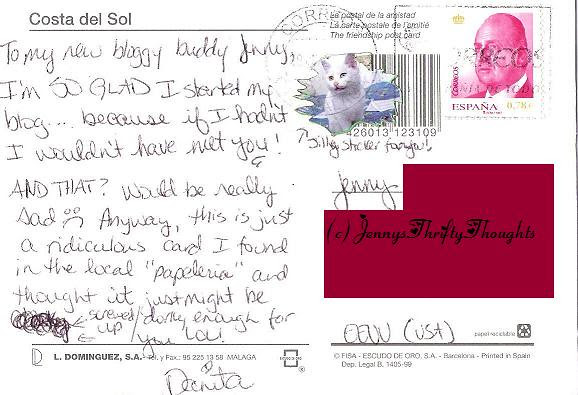 Costa del Sol
To my new bloggy buddy Jenny,
I'm SO GLAD I started my
blog... because if I hadn't
I wouldn't have met you!
AND THAT? Would be really
sad Anyway, this is just
a ridiculous card I found
in the local "papeleria" and
thought it just might be
screwed/dorky enough for
up
you LOL!
Danita
L. DOMINGUEZ, S.A. - Tel. y Fax.: 95 225 13 58 MALAGA
La postal de la amistad
La carte postale de l'amitié
The friendship post card
CORREOS
ESPAÑA 0,78€
426013 123109
? Silly sticker for you!
Jenny
(c) JennysThriftyThoughts
EEUU (USA)
papel reciclable
© FISA - ESCUDO DE ORO, S.A. - Barcelona - Printed in Spain
Dep. Legal B. 1405-99